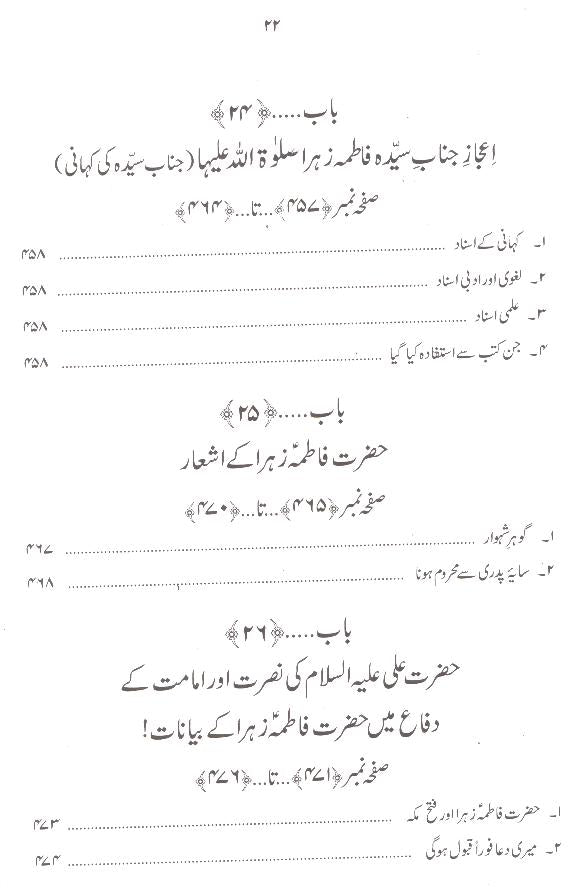 ۲۲
باب.....﴿۲۴﴾
اِعجازِ جنابِ سیّدہ فاطمہ زہرا صلوٰۃ اللہ علیہا (جناب سیّدہ کی کہانی)
صفحہ نمبر ﴿۴۵۷﴾...تا...﴿۴۶۴﴾
۱۔ کہانی کے اسناد ........ ۴۵۸
۲۔ لغوی اور ادبی اسناد ........ ۴۵۸
۳۔ علمی اسناد ........ ۴۵۸
۴۔ جن کتب سے استفادہ کیا گیا ........ ۴۵۸
باب.....﴿۲۵﴾
حضرت فاطمہؑ زہرا کے اشعار
صفحہ نمبر ﴿۴۶۵﴾...تا...﴿۴۷۰﴾
۱۔ گوہرِ شہوار ........ ۴۶۷
۲۔ سایۂ پدری سے محروم ہونا ........ ۴۶۸
باب.....﴿۲۶﴾
حضرت علی علیہ السلام کی نصرت اور امامت کے
دفاع میں حضرت فاطمہؑ زہرا کے بیانات!
صفحہ نمبر ﴿۴۷۱﴾...تا...﴿۴۷۶﴾
۱۔ حضرت فاطمہؑ زہرا اور فتح مکہ ........ ۴۷۳
۲۔ میری دعا فوراً قبول ہوگی ........ ۴۷۴